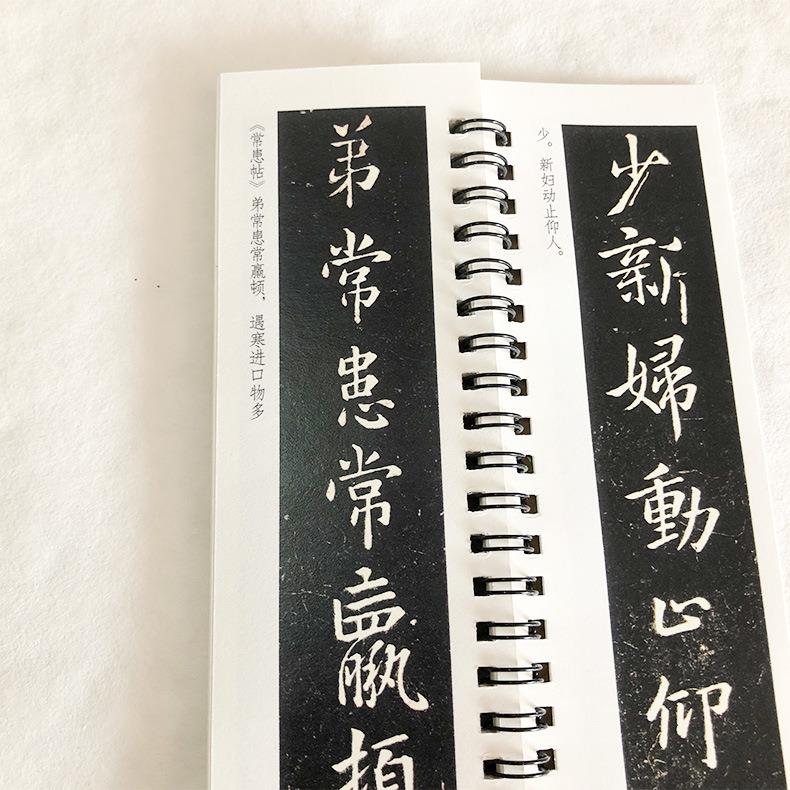 《常患帖》弟常患常羸顿，遇寒进口物多
弟常患常羸頓
少。新妇动止仰人。
少新婦動止仰